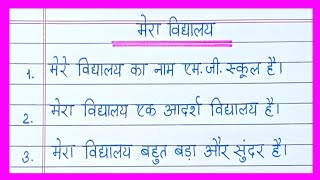 मेरा विद्यालय
1. मेरे विद्यालय का नाम एम.जी. स्कूल है।
2. मेरा विद्यालय एक आदर्श विद्यालय है।
3. मेरा विद्यालय बहुत बड़ा और सुंदर है।